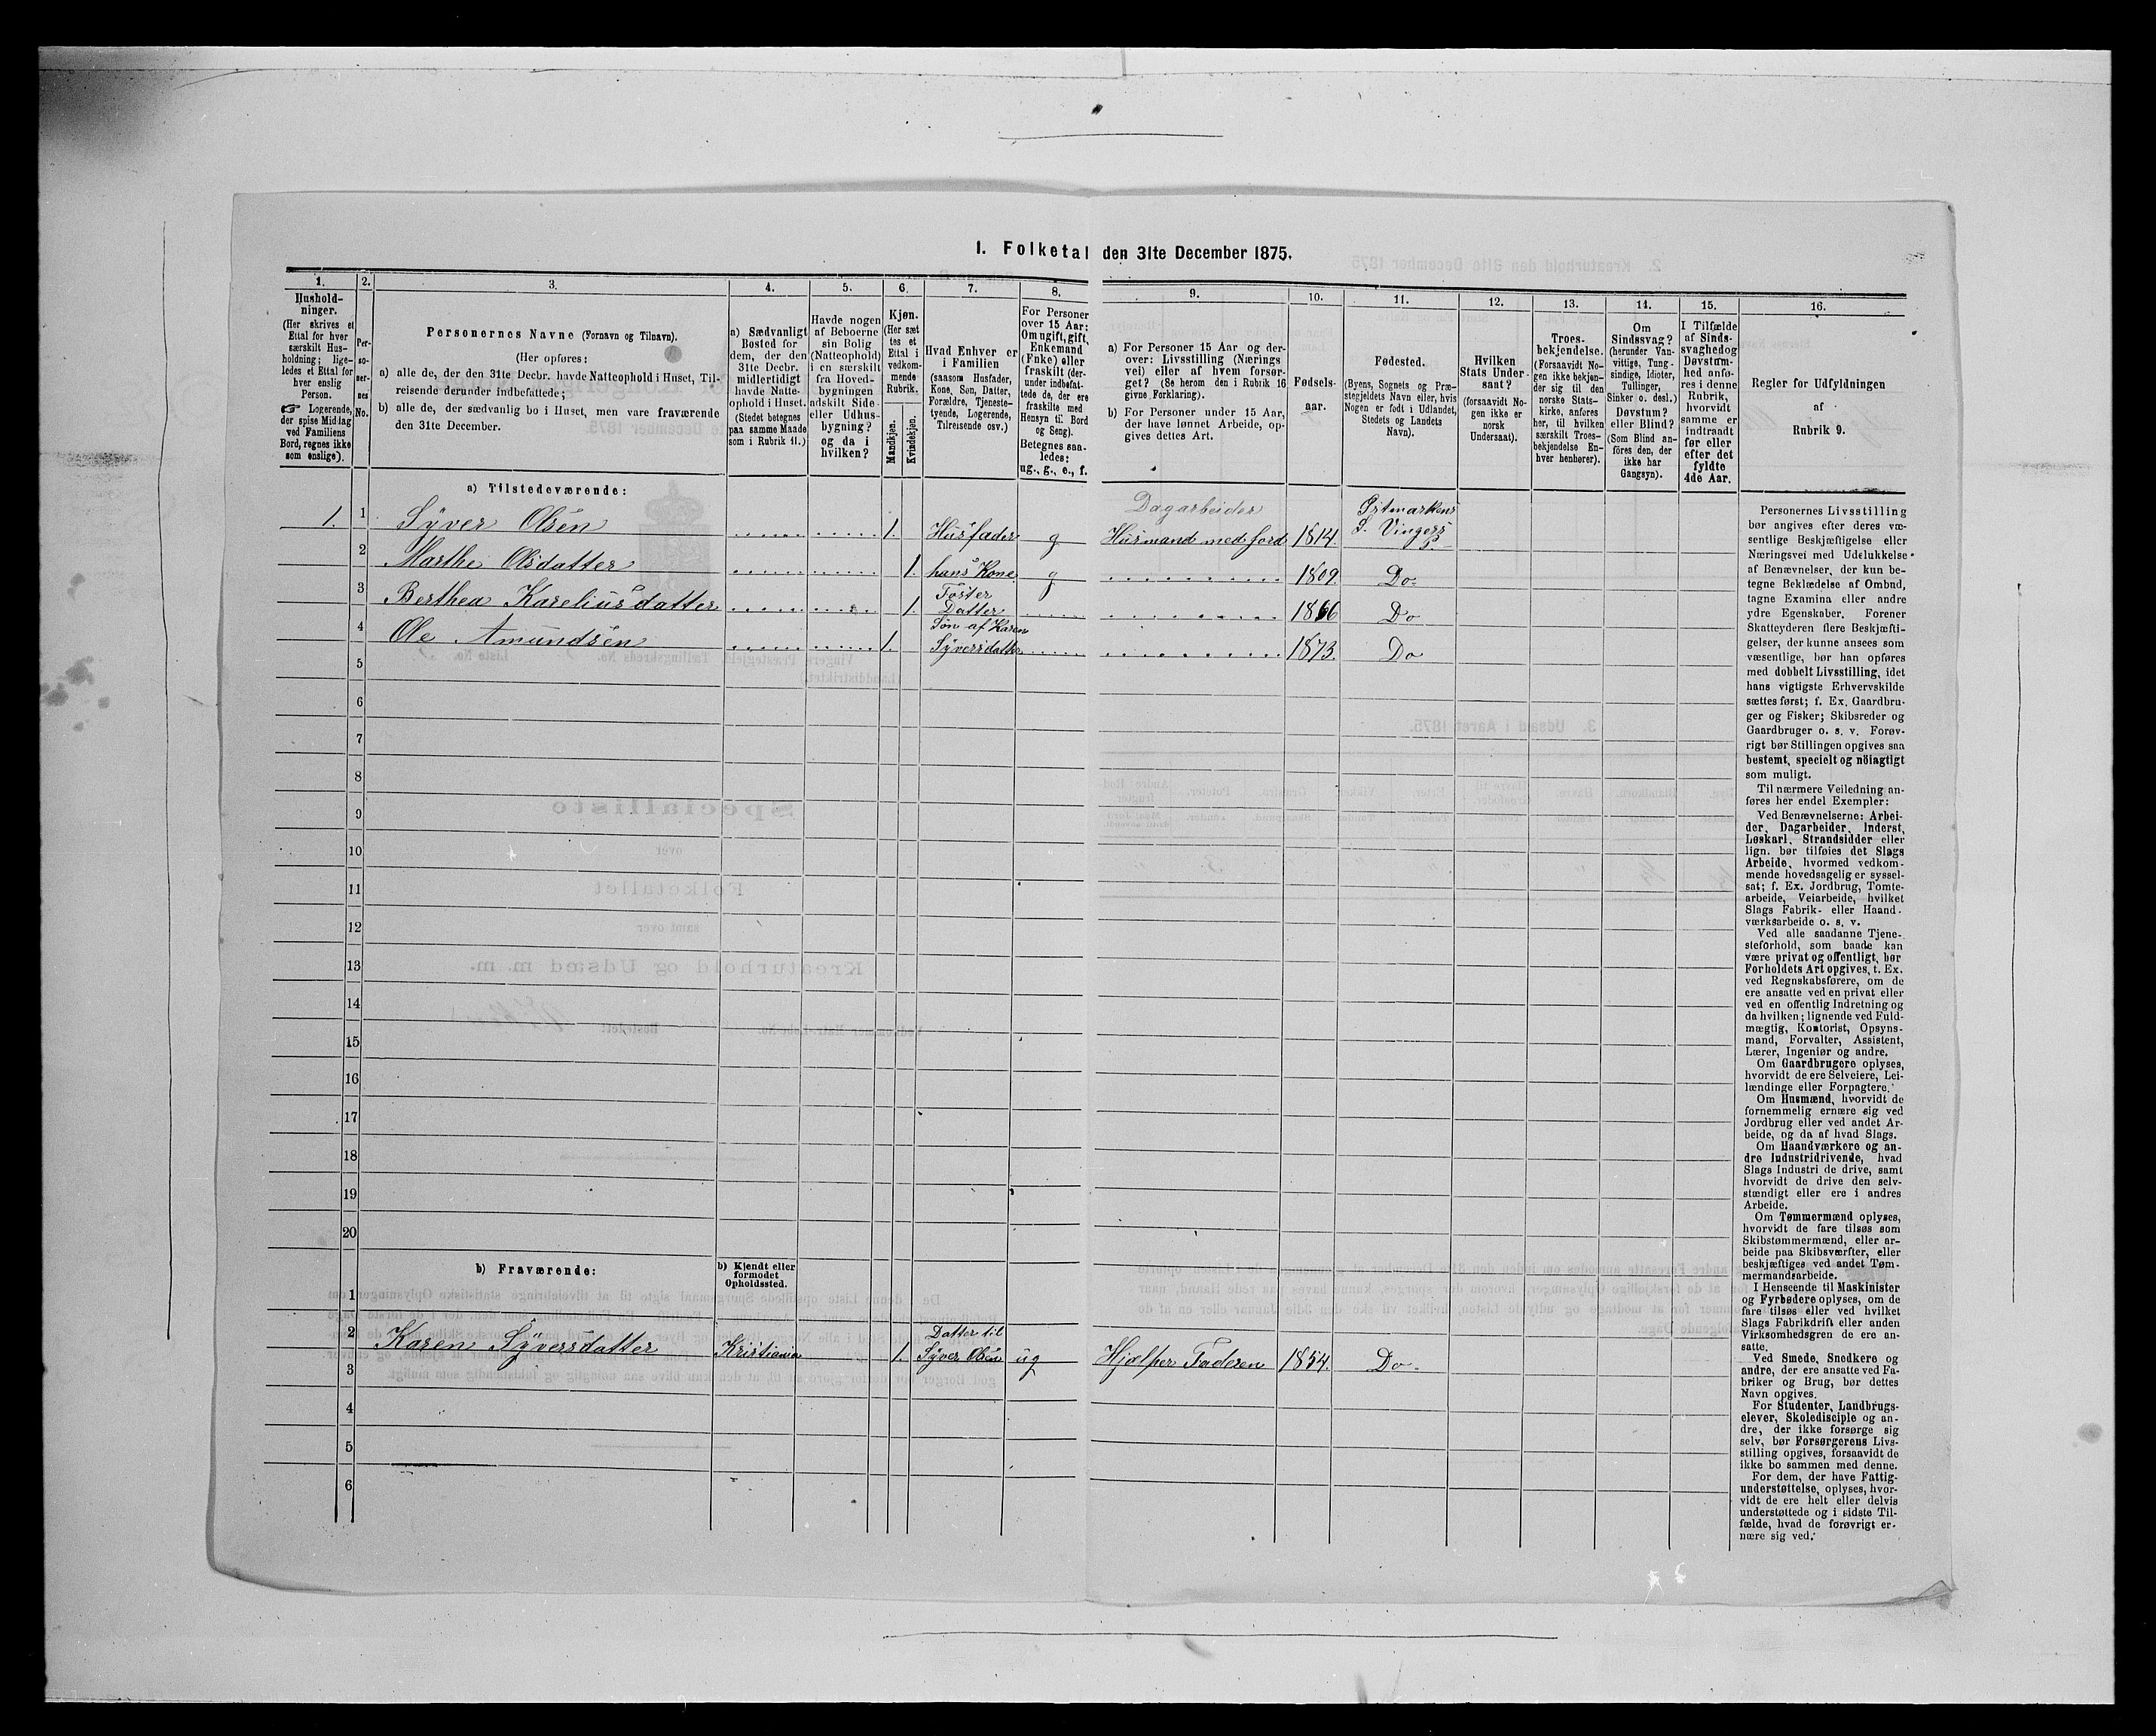 1. Folketal den 31te December 1875.
1.
Hushold-
ninger.
(Her skrives et
Ettal for hver
særskilt Hus-
holdning; lige-
ledes et Ettal for
hver enslig
Person.
☞ Logerende,
der spise Middag
ved Familiens
Bord, regnes ikke
som enslige).
2.
Per-
so-
ner-
nes
No.
3.
Personernes Navne (Fornavn og Tilnavn).
(Her opføres:
a) alle de, der den 31te Decbr. havde Natteophold i Huset, Til-
reisende derunder indbefattede;
b) alle de, der sædvanlig bo i Huset, men vare fraværende
den 31te December.
4.
a) Sædvanligt
Bosted for
dem, der den
31te Decbr.
midlertidigt
havde Natte-
ophold i Huset.
(Stedet betegnes
paa samme Maade
som i Rubrik 11.)
5.
Havde nogen
af Beboerne
sin Bolig
(Natteophold)
i en særskilt
fra Hoved-
bygningen
adskilt Side-
eller Udhus-
bygning?
og da i
hvilken?
6.
Kjøn.
(Her sæt
tes et
Ettal i
vedkom-
mende
Rubrik.
Mandkjøn.
Kvindekjøn.
7.
Hvad Enhver er
i Familien
(saasom Husfader,
Kone, Søn, Datter,
Forældre, Tjeneste-
tyende, Logerende,
Tilreisende osv.)
8.
For Personer
over 15 Aar:
Om ugift, gift,
Enkemand
(Enke) eller
fraskilt (der-
under indbefat-
tede de, der ere
fraskilte med
Hensyn til Bord
og Seng).
Betegnes saa-
ledes:
ug., g., e., f.
9.
a) For Personer 15 Aar og der-
over: Livsstilling (Nærings
vei) eller af hvem forsør-
get? (Se herom den i Rubrik 16
givne Forklaring).
b) For Personer under 15 Aar,
der have lønnet Arbeide, op-
gives dettes Art.
10.
Fødsels-
aar.
11.
Fødested.
(Byens, Sognets og Præ-
stegjeldets Navn eller, hvis
Nogen er født i Udlandet,
Stedets og Landets
Navn).
12.
Hvilken
Stats Under-
saat?
(forsaavidt No-
gen ikke er
norsk
Undersaat).
13.
Troes-
bekjendelse.
(Forsaavidt No-
gen ikke bekjen-
der sig til den
norske Stats-
kirke, anføres
her, til hvilken
særskilt Troes-
bekjendelse En-
hver henhører).
14.
Om
Sindssvag?
(herunder Van-
vittige, Tung-
sindige, Idioter,
Tullinger,
Sinker o. desl.)
Døvstum?
eller Blind?
(Som Blind an-
føres den, der
ikke har
Gangsyn).
15.
I Tilfælde
af Sinds-
svaghed og
Døvstum-
hed anfø-
res i denne
Rubrik,
hvorvidt
samme er
indtraadt
før eller
efter det
fyldte
4de Aar.
16.
Regler for Udfyldningen
af
Rubrik 9.
a) Tilstedeværende:
1. 1 Syver Olsen 1. Husfader g Dagarbeider Husmand med Jord 1814. Østmarkens S. Vingers P.
2 Marthe Olsdatter 1. hans Kone g 1809. Do.
3 Berthea Kareliusdatter 1. Foster Datter 1866 Do
4 Ole Amundsen 1. Søn af Karen Syversdatter 1873. Do
5
6
7
8
9
10
11
12
13
14
15
16
17
18
19
20
b) Fraværende:
b) Kjendt eller
formodet
Opholdssted.
1
2 Karen Syversdatter Kristiania 1. Datter til Syver Olsen ug Hjælper Faderen 1854. Do.
3
4
5
6
Personernes Livsstilling
bør angives efter deres væ-
sentlige Beskjæftigelse eller
Næringsvei med Udelukkelse
af Benævnelser, der kun be-
tegne Beklædelse af Ombud,
tagne Examina eller andre
ydre Egenskaber. Forener
Skatteyderen flere Beskjæfti-
gelser, der kunne ansees som
væsentlige, bør han opføres
med dobbelt Livsstilling, idet
hans vigtigste Erhvervskilde
sættes først; f. Ex. Gaardbru-
ger og Fisker; Skibsreder og
Gaardbruger o. s. v. Forøv-
rigt bør Stillingen opgives saa
bestemt, specielt og nöiagtigt
som muligt.
Til nærmere Veiledning an-
føres her endel Exempler:
Ved Benævnelserne: Arbei-
der, Dagarbeider, Inderst,
Løskarl, Strandsidder eller
lign. bør tilføies det Slags
Arbeide, hvormed vedkom-
mende hovedsagelig er syssel-
sat; f. Ex. Jordbrug, Tomte-
arbeide, Veiarbeide, hvilket
Slags Fabrik- eller Haand-
værksarbeide o. s. v.
Ved alle saadanne Tjene-
steforhold, som baade kan
være privat og offentligt, bør
Forholdets Art opgives, f. Ex.
ved Regnskabsførere, om de
ere ansatte ved en privat eller
ved en offentlig Indretning og
da hvilken; lignende ved Fuld-
mægtig, Kontorist, Opsyns-
mand, Forvalter, Assistent,
Lærer, Ingeniør og andre.
Om Gaardbrugere oplyses,
hvorvidt de ere Selveiere, Lei-
lændinge eller Forpagtere.
Om Husmænd, hvorvidt de
fornemmelig ernære sig ved
Jordbrug eller ved andet Ar-
beide, og da af hvad Slags.
Om Haandværkere og an-
dre Industridrivende, hvad
Slags Industri de drive, samt
hvorvidt de drive den selv-
stændigt eller ere i andres
Arbeide.
Om Tømmermænd oplyses,
hvorvidt de fare tilsøs som
Skibstømmermænd, eller ar-
beide paa Skibsværfter, eller
beskjæftiges ved andet Tøm-
mermandsarbeide.
I Henseende til Maskinister
og Fyrbødere oplyses, om de
fare tilsøs eller ved hvilket
Slags Fabrikdrift eller anden
Virksomhedsgren de ere an-
satte.
Ved Smede, Snedkere og
andre, der ere ansatte ved Fa-
briker og Brug, bør dettes
Navn opgives.
For Studenter, Landbrugs-
elever, Skoledisciple og an-
dre, der ikke forsørge sig
selv, bør Forsørgerens Livs-
stilling opgives, forsaavidt de
ikke bo sammen med denne.
For dem, der have Fattig-
understøttelse, oplyses, hvor-
vidt de ere helt eller delvis
understøttede og i sidste Til-
fælde, hvad de forøvrigt er-
nære sig ved.